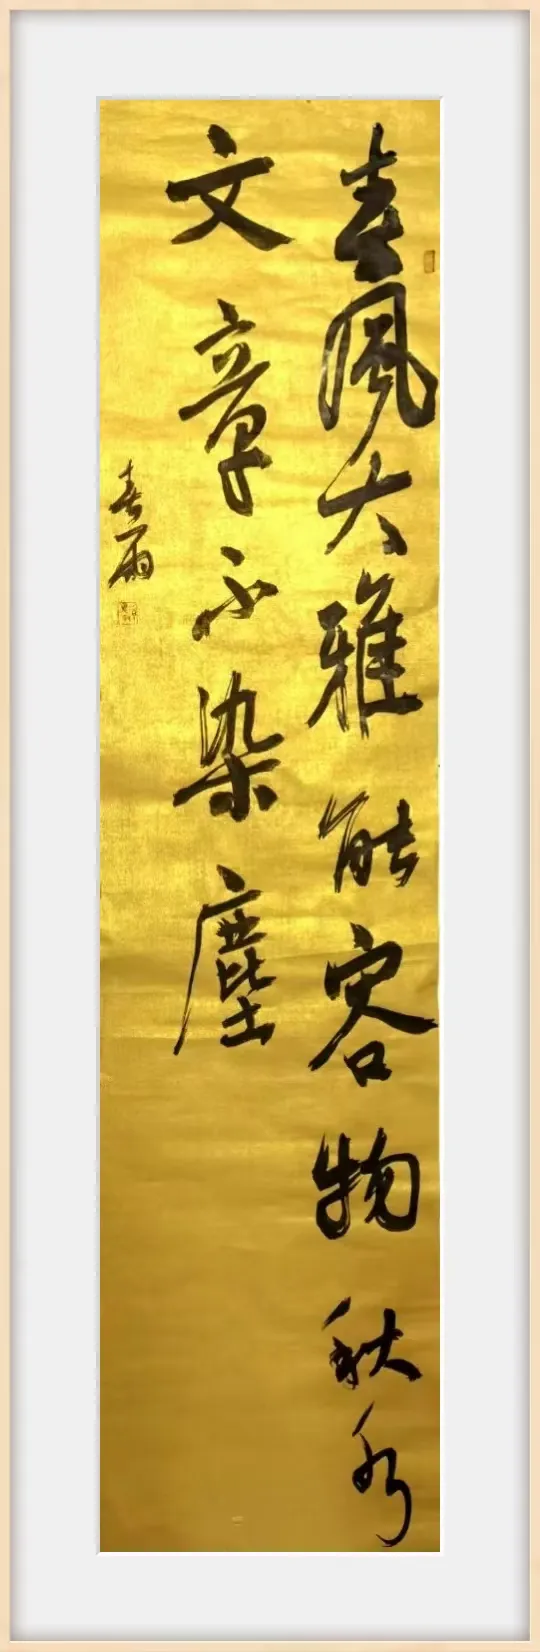 春風大雅能容物秋水
文章不染塵
春雨